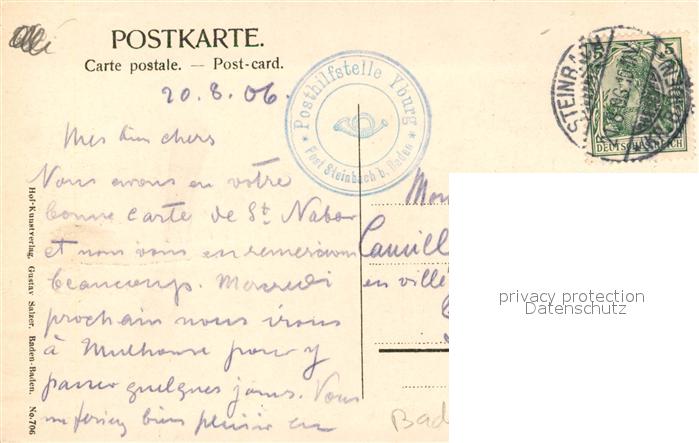 POSTKARTE.
Carte postale. — Post-card.
20.8.06.
Posthilfstelle Yburg
Post Steinbach b. Baden
STEINBACH
5 5
DEUTSCHES REICH
Mes bien chers
Nous avons eu votre
bonne carte de St. Nabor
et nous vous en remercions
beaucoup. Mercredi
prochain nous irons
à Mulhouse pour y
passer quelques jours. Vous
me feriez bien plaisir en
Camill
en ville
Bad
Hof-Kunstverlag, Gustav Salzer, Baden-Baden. No. 706
privacy protection
Datenschutz